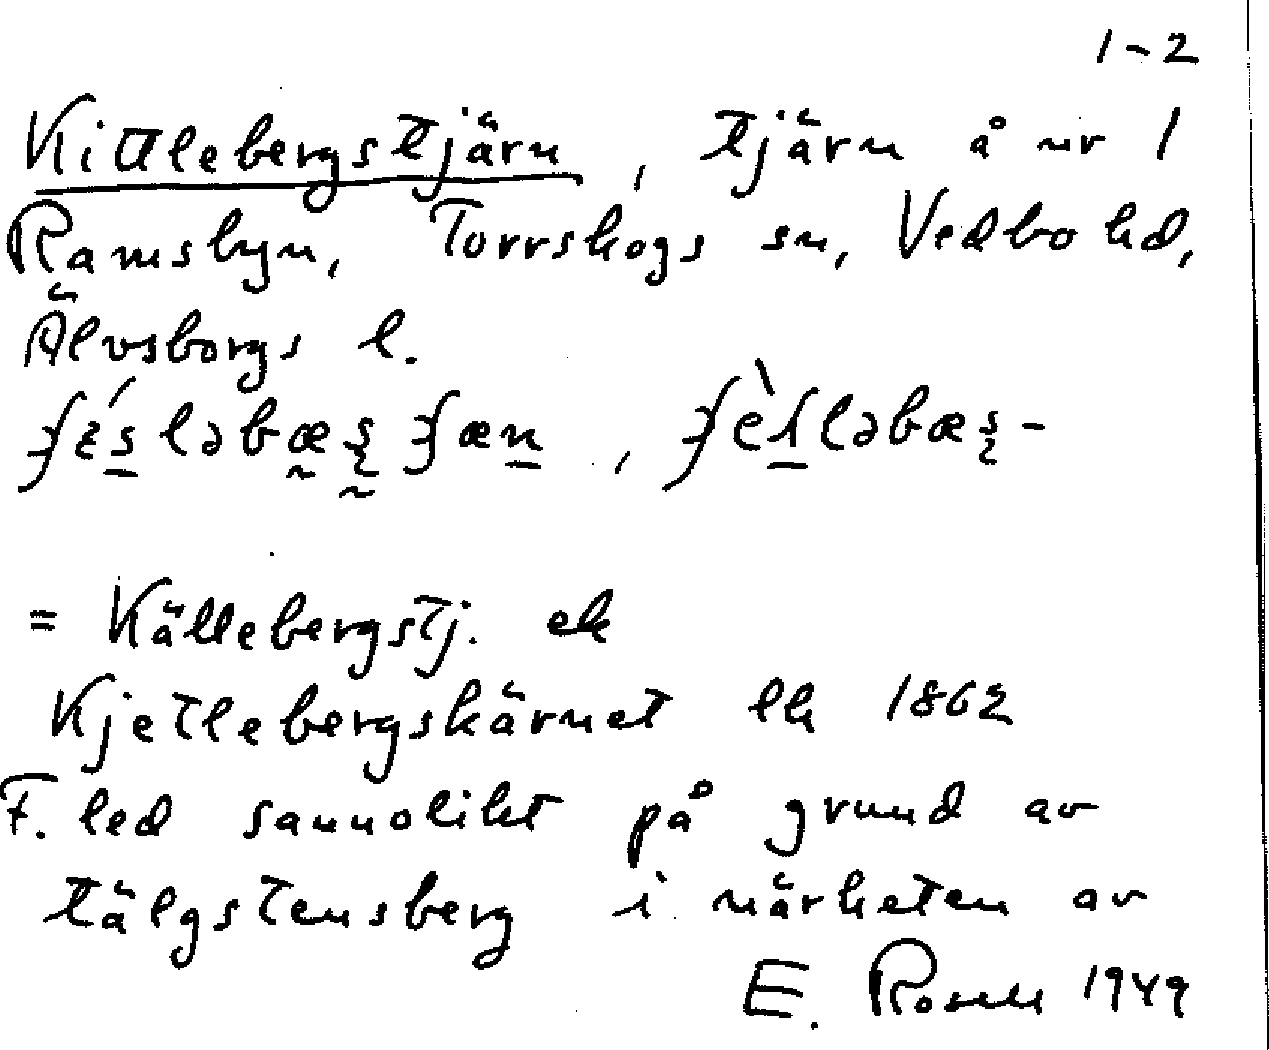 1-2
Kittlebergstjärn, tjärn å nr 1
Ramsbyn, Torrskogs sn, Vedbo hd,
Älvsborgs l.
= Källebergstj. ek
Kjetlebergskärnet lk 1862
F. led sannolikt på grund av
tälgstensberg i närheten av
E. Rosell 1949